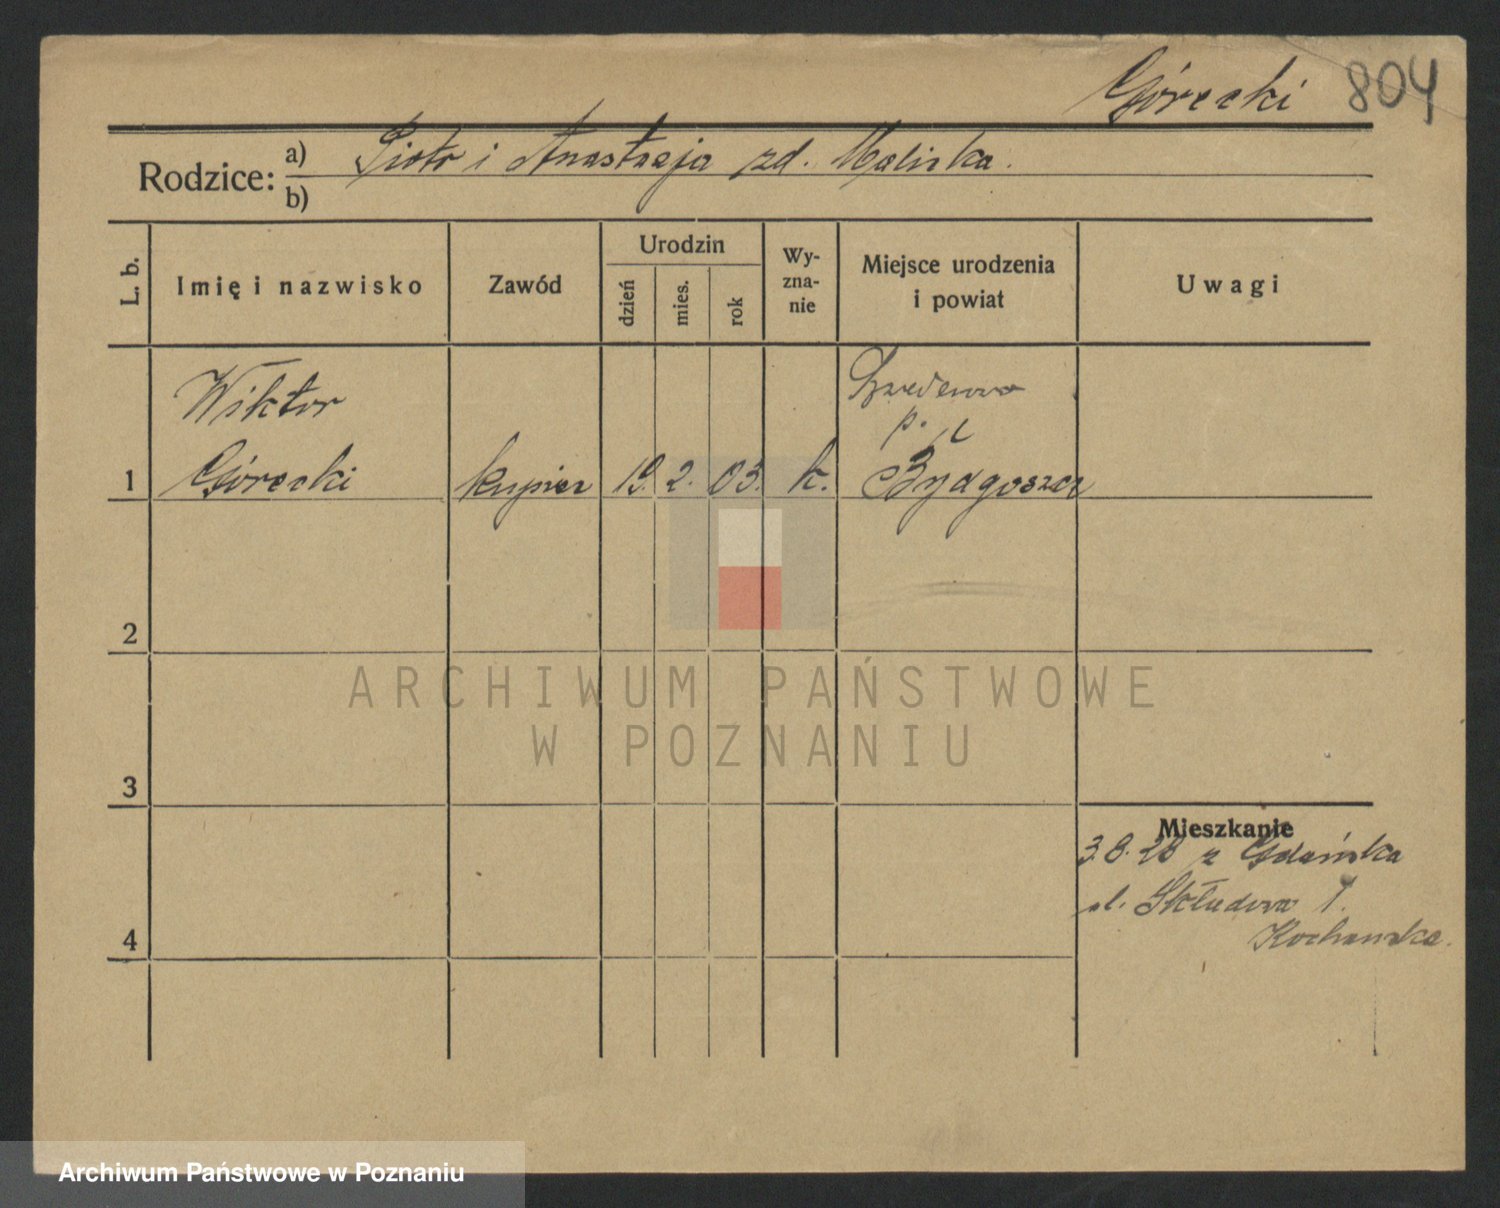 Górecki 804
Rodzice: a) Piotr i Anastazja zd. Maliska.
b)
L. b. Imię i nazwisko Zawód Urodzin dzień mies. rok Wy-zna-nie Miejsce urodzenia i powiat Uwagi
Wiktor
p.
1 Górecki kupiec 19. 2. 03. k. Bydgoszcz
2
ARCHIWUM PAŃSTWOWE
W POZNANIU
3
Mieszkanie
3.8.28 z Gdańska
ul. Składowa 1.
Kochanska.
4
Archiwum Państwowe w Poznaniu